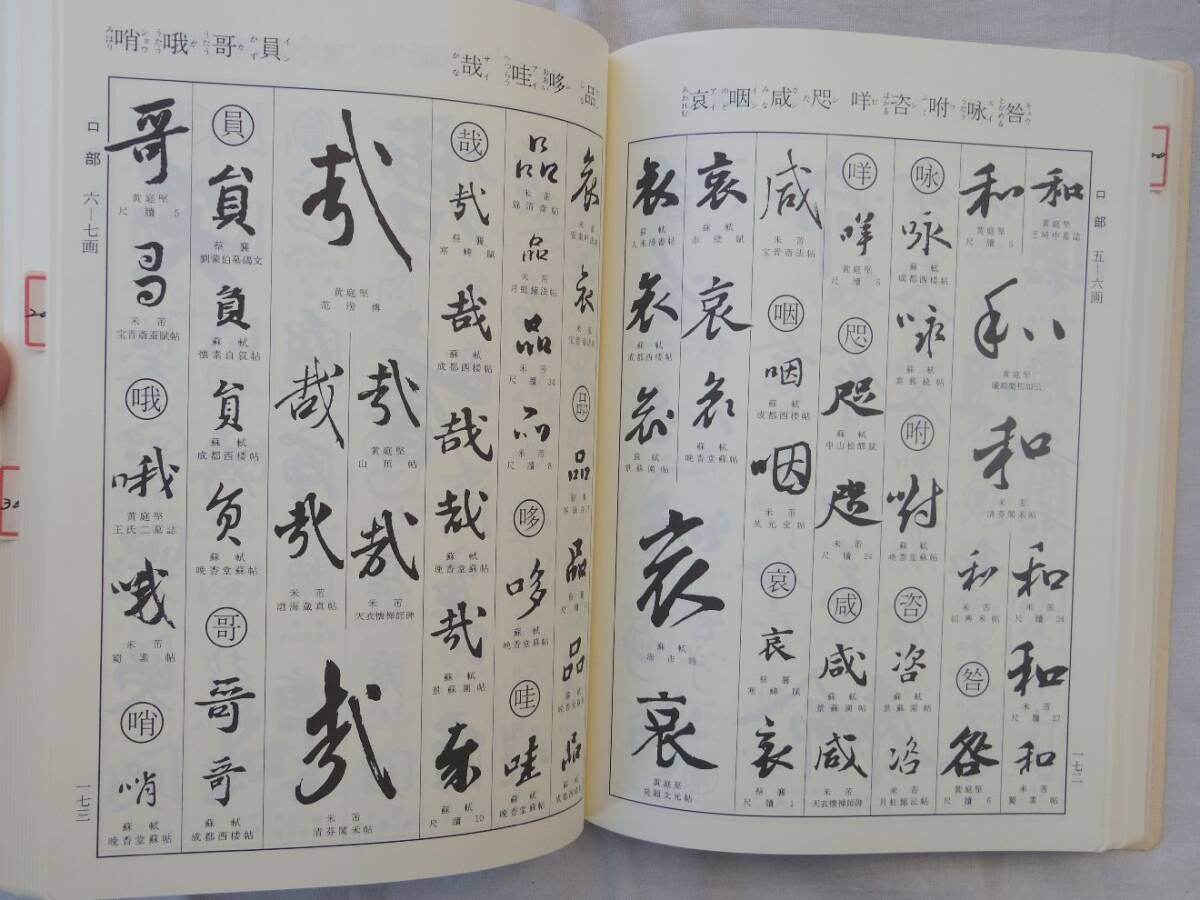 咎 咏 咐 咨 咩 咫 咸 咽 哀
口部 五―六画
一七二
和
黄庭堅
王純中墓誌
和
米芾
尺牘 24
和
米芾
尺牘 27
和
米芾
蜀素帖
和
黄庭堅
尺牘 5
和
黄庭堅
和
米芾
清芬閣米帖
和
米芾
紹興米帖
咎
咎
黄庭堅
尺牘 6
咏
咏
蘇軾
成都西楼帖
咏
蘇軾
咐
咐
蘇軾
晩香堂蘇帖
咨
咨
蘇軾
景蘇園帖
咨
米芾
月虹館法帖
咩
咩
黄庭堅
尺牘 5
咫
咫
蘇軾
中山松醪賦
咫
米芾
尺牘 24
咸
咸
蘇軾
景蘇園帖
咸
米芾
天衣懐禅師碑
咸
米芾
宝晋斎法帖
咽
咽
蘇軾
成都西楼帖
咽
米芾
英光堂帖
哀
哀
蔡襄
寒蟬賦
哀
蔡襄
尺牘 1
哀
蘇軾
赤壁賦
哀
哀
蘇軾
晩香堂蘇帖
哀
蘇軾
人来得書帖
哀
蘇軾
成都西楼帖
哀
蘇軾
景蘇園帖
哀
蘇軾
哀
黄庭堅
品 哆 哇 哉
員 哥 哦 哨
口部 六―七画
一七三
哀
米芾
哀
米芾
宝晋斎法帖
品
品
品
品
品
蘇軾
成都西楼帖
品
米芾
品
米芾
月虹館法帖
品
米芾
尺牘 34
品
米芾
尺牘 8
哆
哆
蘇軾
晩香堂蘇帖
哇
哇
蘇軾
晩香堂蘇帖
哉
哉
蔡襄
寒蟬賦
哉
蘇軾
成都西楼帖
哉
哉
蘇軾
晩香堂蘇帖
哉
蘇軾
景蘇園帖
哉
蘇軾
尺牘 10
哉
黄庭堅
范滂傳
哉
黄庭堅
哉
米芾
天衣懐禅師碑
哉
哉
米芾
渤海蔵真帖
哉
米芾
清芬閣米帖
員
員
蔡襄
劉蒙伯墓碣文
員
蘇軾
懐素自叙帖
員
蘇軾
成都西楼帖
員
蘇軾
晩香堂蘇帖
哥
哥
哥
蘇軾
成都西楼帖
哥
黄庭堅
尺牘 5
哥
米芾
哦
哦
黄庭堅
王氏二墓誌
哦
米芾
蜀素帖
哨
哨
蘇軾
晩香堂蘇帖